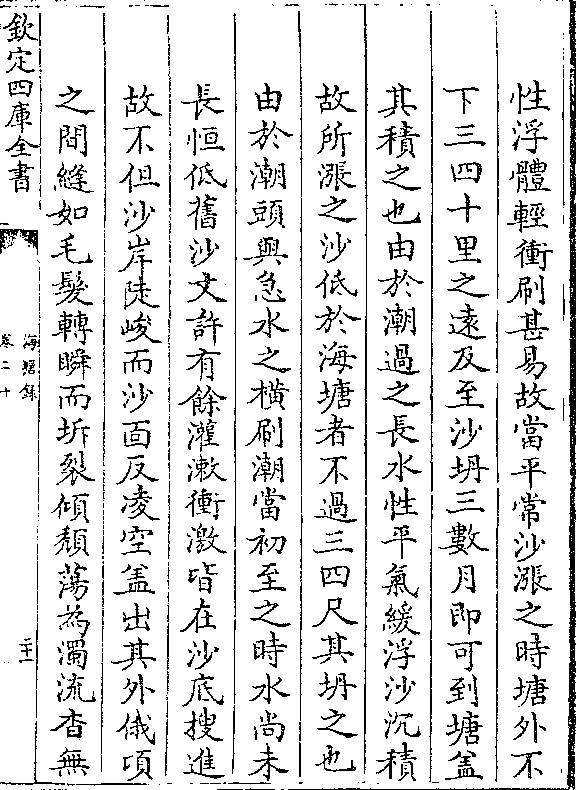 性浮體輕衝刷甚易故當平常沙漲之時塘外不
下三四十里之遠及至沙坍三數月即可到塘盖
其積之也由於潮過之長水性平氣緩浮沙沉積
故所漲之沙低於海塘者不過三四尺其坍之也
由於潮頭與急水之横刷潮當初至之時水尚未
長恒低舊沙丈許有餘灌漱衝激皆在沙底搜進
故不但沙岸陡峻而沙面反凌空盖出其外俄頃
之間縫如毛髮轉瞬而坼裂傾頽蕩為濁流杳無
欽定四庫全書
海塘録
卷二十
二十一